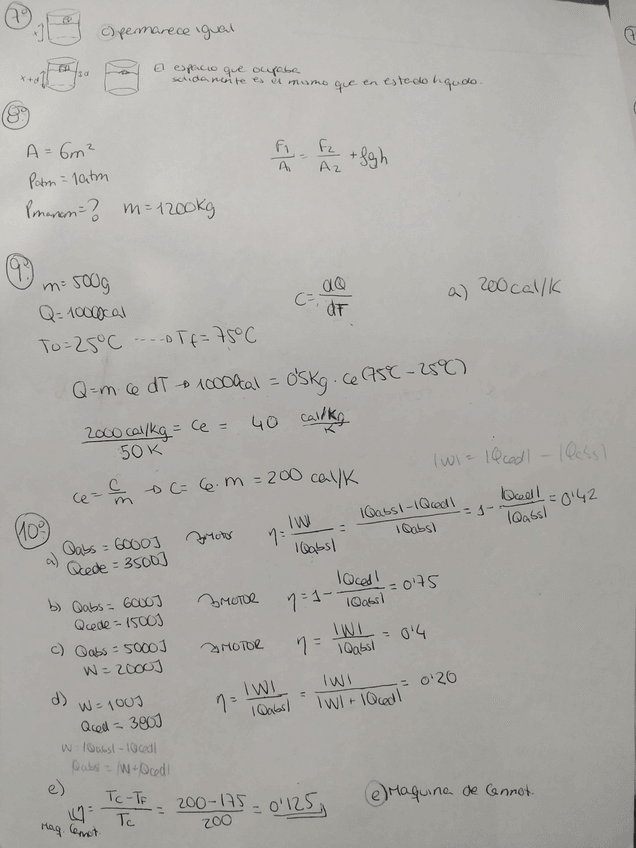 7º
c) permanece igual
El espacio que ocupaba
solidamente es el mismo que en estado liquido.
8º
A = 6m²
F₁/A₁ = F₂/A₂ + ρgh
Patm = 1atm
Pmanom = ? m = 1200Kg
9º
m = 500g
C = dQ/dT
a) 200 cal/K
Q = 10000cal
To = 25ºC ----→ Tf = 75ºC
Q = m · ce dT → 10000cal = 0'5Kg · ce (75ºC - 25ºC)
2000 cal/kg / 50 K = ce = 40 cal/kg / K
|W| = |Qced| - |Qabs|
ce = C/m → C = ce · m = 200 cal/K
10º
a) Qabs = 6000J
Qcede = 3500J
→ MOTOR η = |W|/|Qabs| = |Qabs|-|Qced|/|Qabs| = 1 - |Qced|/|Qabs| = 0'42
b) Qabs = 6000J
Qcede = 1500J
→ MOTOR η = 1 - |Qced|/|Qabs| = 0'75
c) Qabs = 5000J
W = 2000J
→ MOTOR η = |W|/|Qabs| = 0'4
d) W = 100J
Qced = 390J
η = |W|/|Qabs| = |W|/|W|+|Qced| = 0'20
W = |Qabs| - |Qced|
Qabs = |W+Qced|
e)
η = Tc-TF/Tc = 200-175/200 = 0'125
Maq. Carnot.
e) Maquina de Carnot.